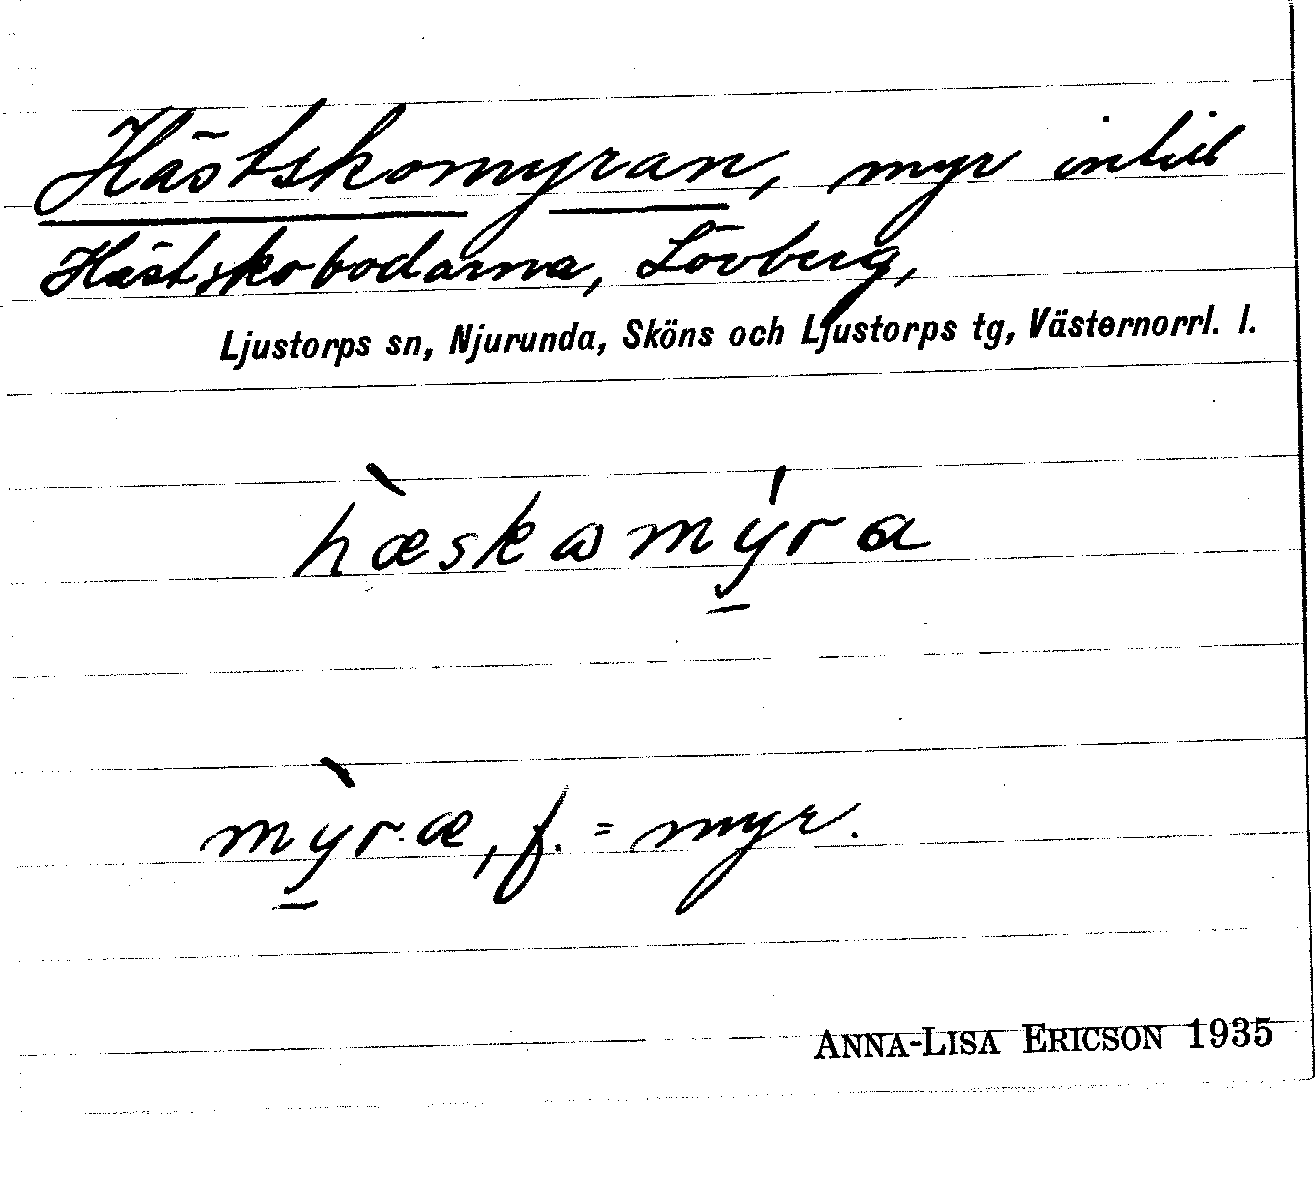 Hästskomyran, myr intill
Hästskobodarna, Lövberg,
Ljustorps sn, Njurunda, Sköns och Ljustorps tg, Västernorrl. l.
hæ̀skωmý̲ra
mỳ̲r.æ, f. = myr.
ANNA-LISA ERICSON 1935